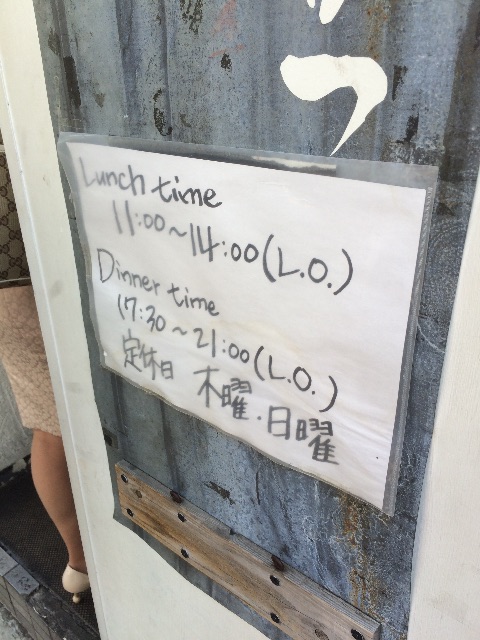 Lunch time
11:00～14:00(L.O.)
Dinner time
17:30～21:00(L.O.)
定休日 木曜・日曜